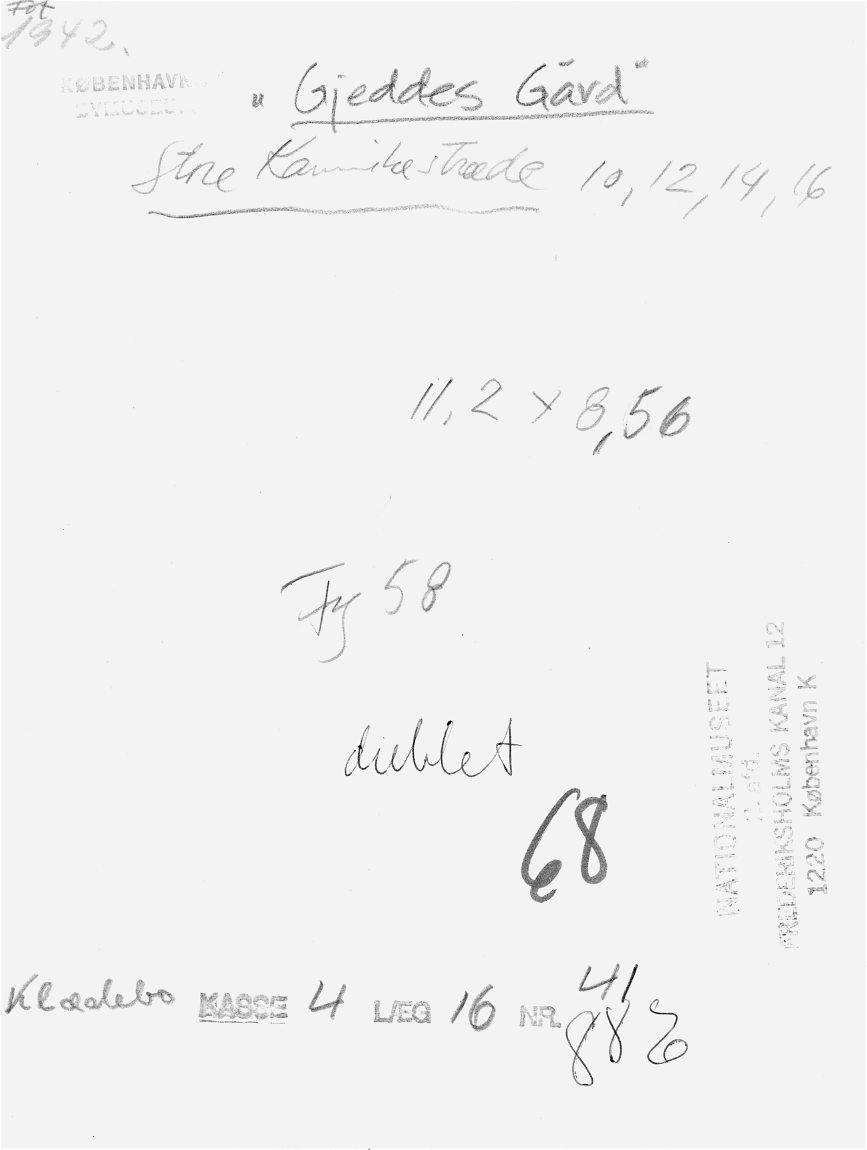 Fot
1942.
KØBENHAVNS
BYMUSEUM
"Gjeddes Gård"
Store Kannikestræde 10, 12, 14, 16
11,2 x 8,56
Fg 58
dublet
68
NATIONALMUSEET
2. afd.
FREDERIKSHOLMS KANAL 12
1220 København K
Klædebo KASSE 4 LÆG 16 NR. 41
88